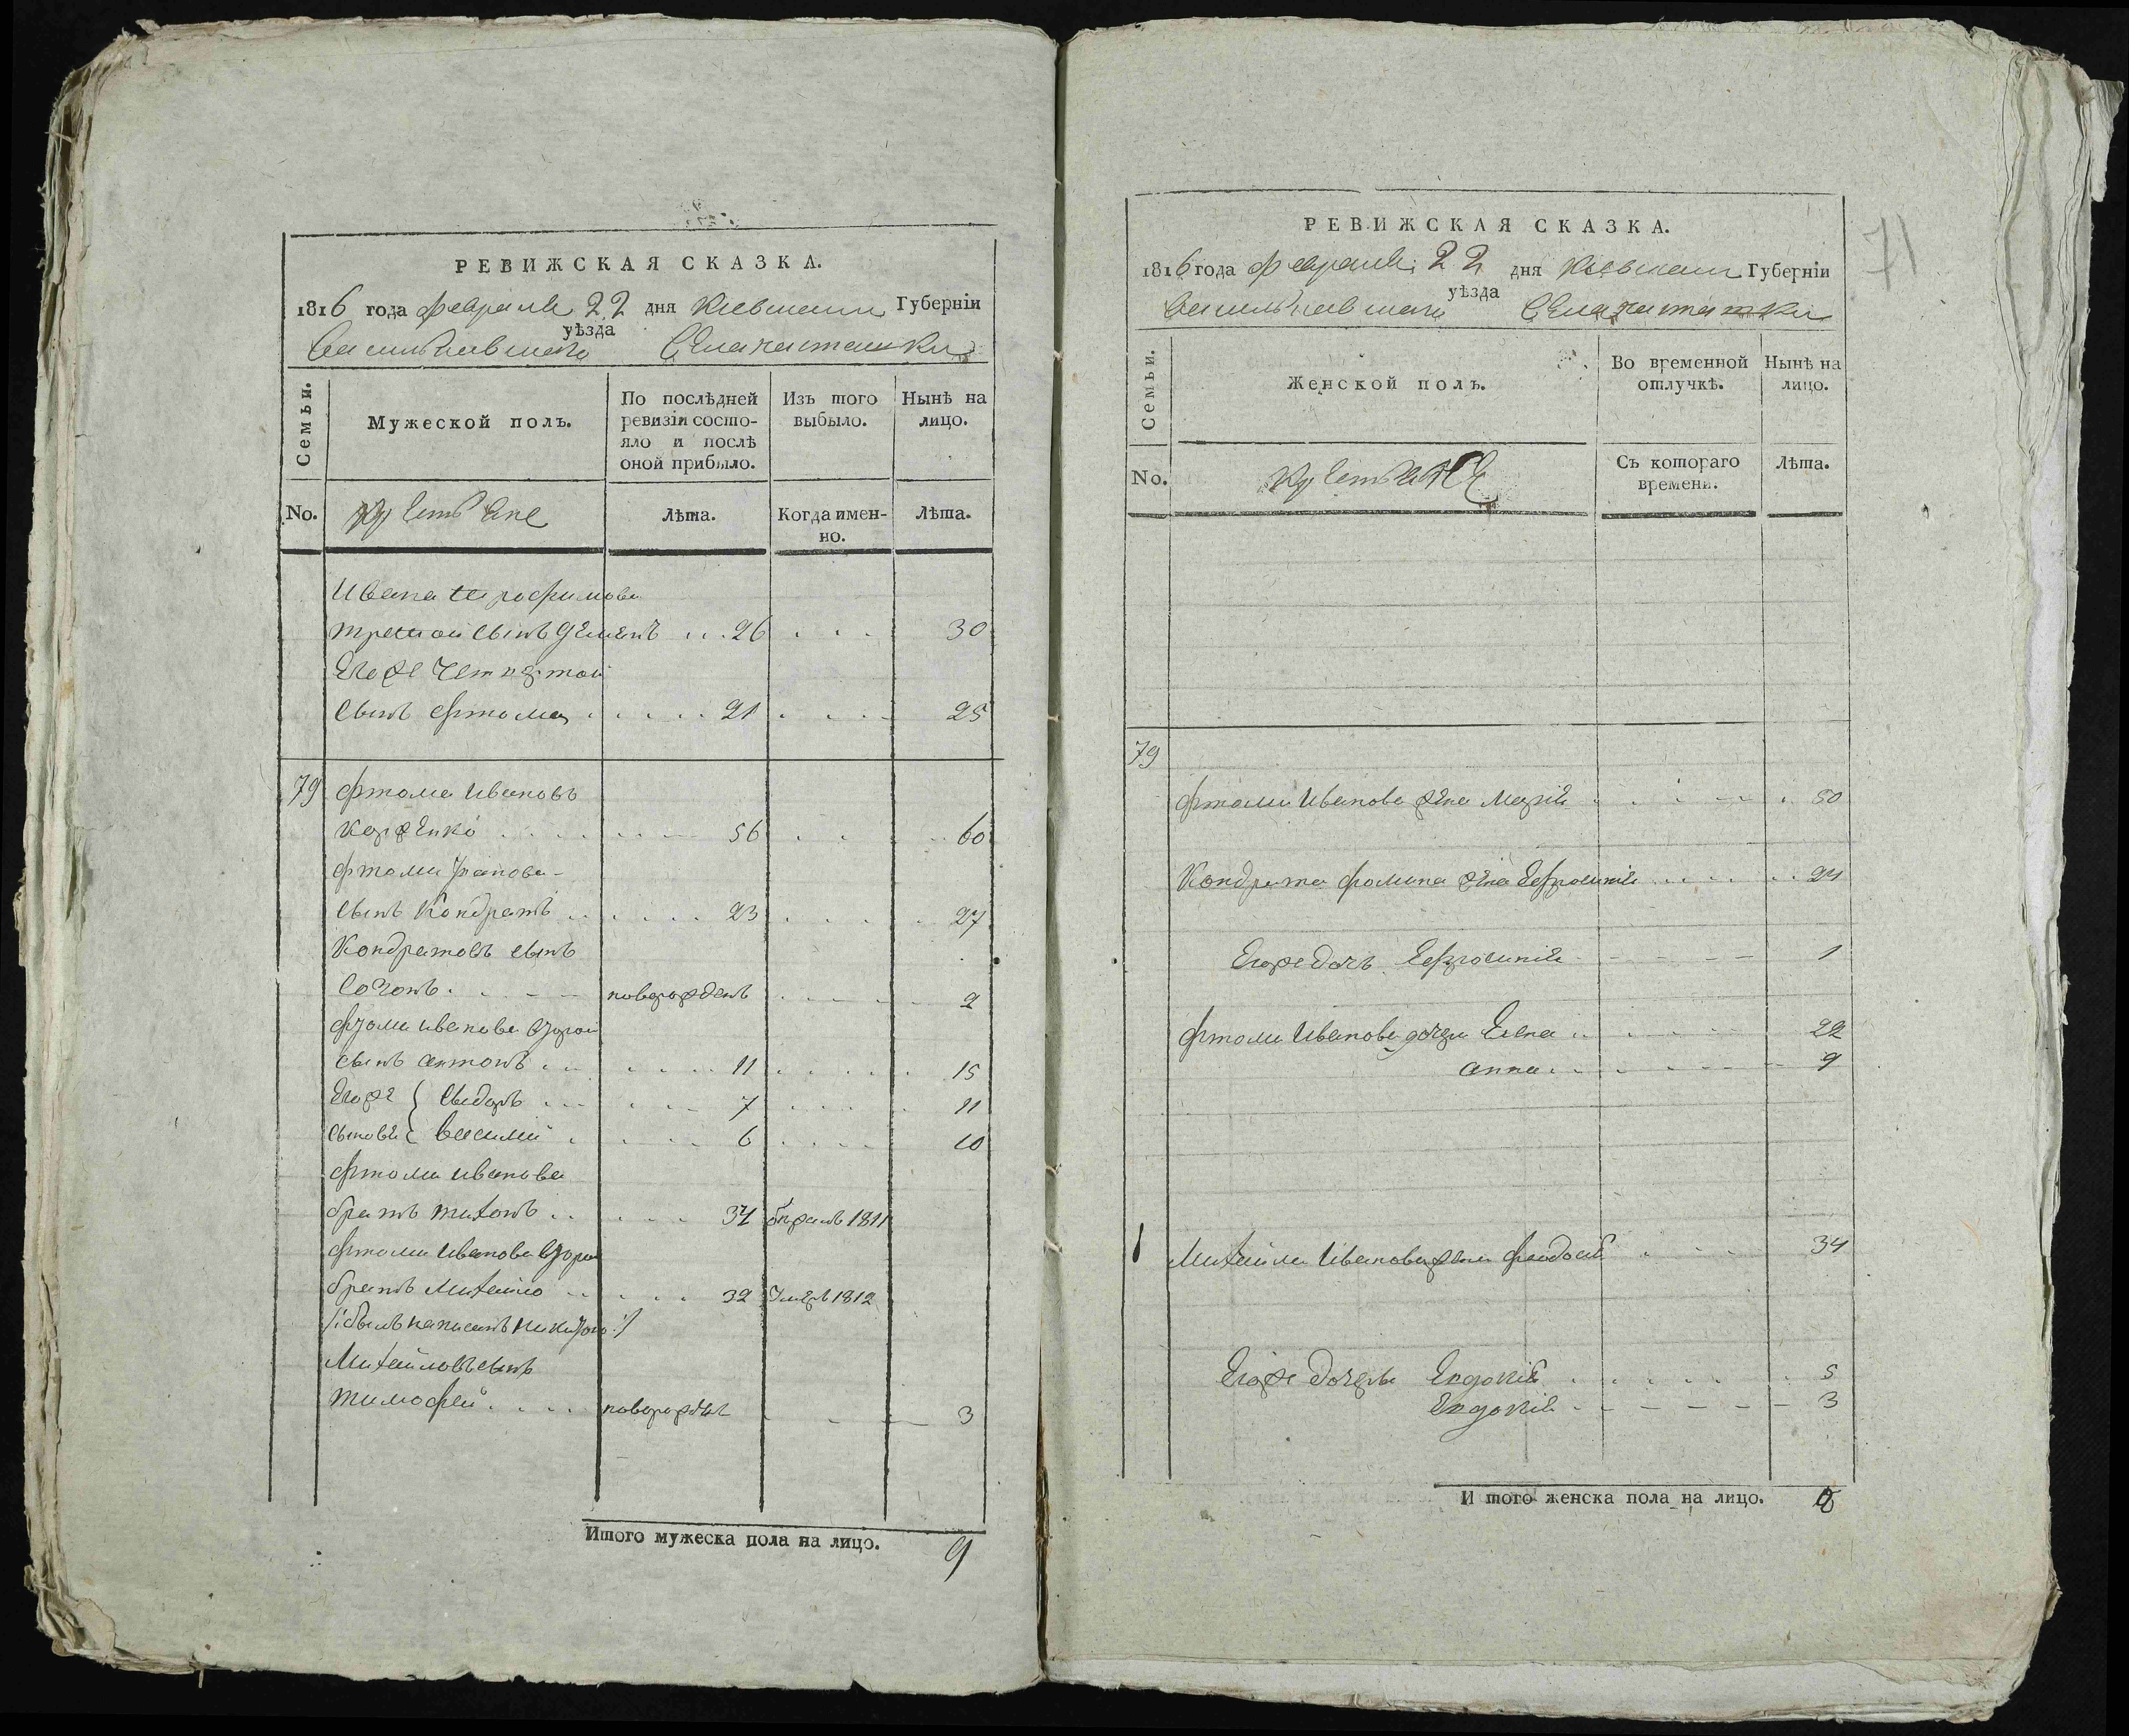 РЕВИЖСКАЯ СКАЗКА.
1816 года февраля 22 дня Киевской Губерніи
Васильковскаго уѣзда Села
Семьи.
Мужеской полъ.
По послѣдней ревизіи состояло и послѣ оной прибыло.
Изъ того выбыло.
Нынѣ на лицо.
No.
крестьяне
Лѣта.
Когда именно.
Лѣта.
Ивана
третой сынъ Демянъ 26 30
Егоже четвертой
сынъ Фтома 21 25
79 Фтома Ивановъ
56 60
Фтомы Иванова
сынъ Кондратъ 23 27
Кондратовъ сынъ
новорожденъ 2
Фтомы Иванова второй
сынъ Антонъ 11 15
Егоже Сыдоръ 7 11
сыновя Василий 6 10
Фтомы Иванова
братъ Тихонъ 34 1811
Фтомы Иванова второй
братъ Михайло 32 умеръ 1812
/: былъ написанъ :/
Михайловъ сынъ
Тимофей новорожденъ 3
Итого мужеска пола на лицо. 9
РЕВИЖСКАЯ СКАЗКА.
71
1816 года февраля 22 дня Киевской Губерніи
Васильковскаго уѣзда Села
Семьи.
Женской полъ.
Во временной отлучкѣ.
Нынѣ на лицо.
No.
крестьяне
Съ котораго времени.
Лѣта.
79
Фтомы Иванова жена Марія 50
Кондрата Фомина жена Ефросинія 24
Егоже дочь Ефросинія 1
Фтомы Иванова дочери Елена 22
Анна 9
Михайла Иванова жена Феодосія 34
Егоже дочеры Евдокія 5
Евдокія 3
Итого женска пола на лицо. 8